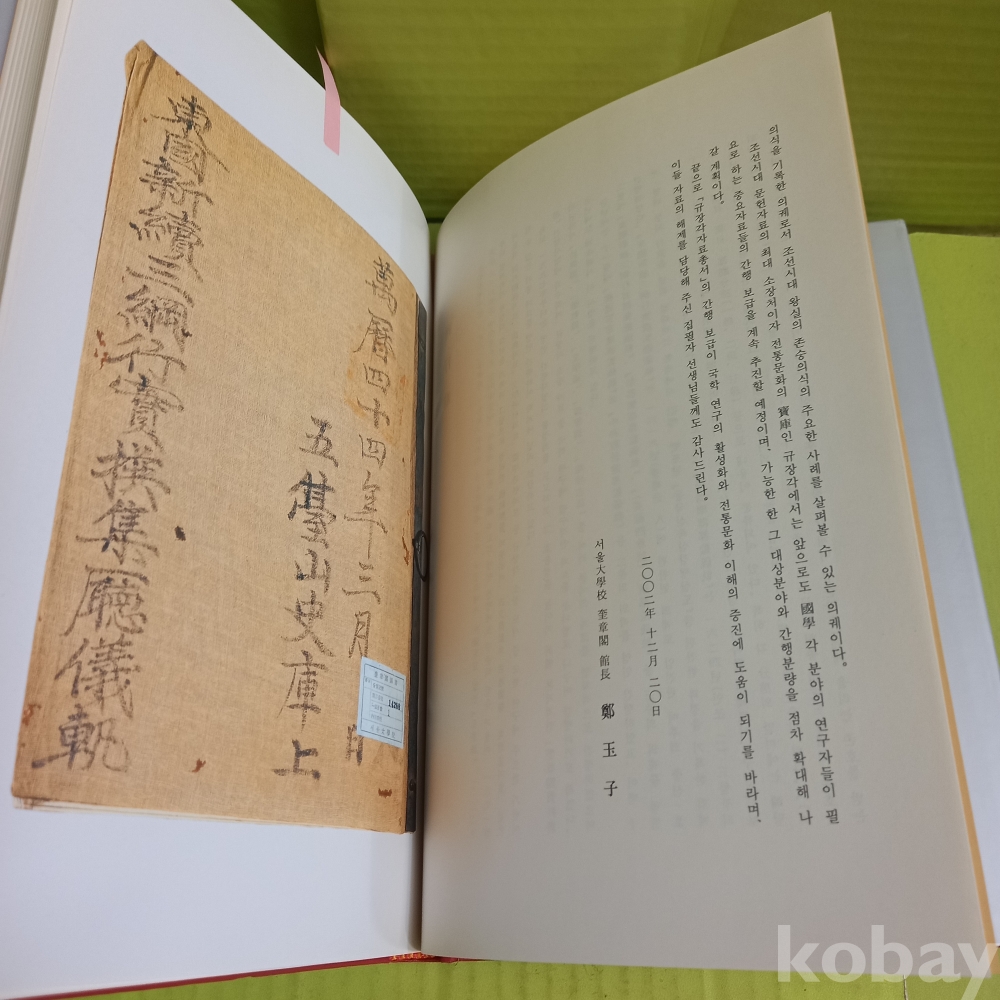 萬曆四十四年三月 月
五臺山史庫上
東國新續三綱行實撰集廳儀軌
의식을 기록한 의궤로서 조선시대 왕실의 존숭의식의 주요한 사례를 살펴볼 수 있는 의궤이다.
조선시대 문헌자료의 최대 소장처이자 전통문화의 寶庫인 규장각에서는 앞으로도 國學 각 분야의 연구자들이 필
요로 하는 중요자료들의 간행 보급을 계속 추진할 예정이며, 가능한 한 그 대상분야와 간행분량을 점차 확대해 나
갈 계획이다.
끝으로 「규장각자료총서」의 간행 보급이 국학 연구의 활성화와 전통문화 이해의 증진에 도움이 되기를 바라며,
이들 자료의 해제를 담당해 주신 집필자 선생님들께도 감사드린다.
二〇〇二年 十二月 二〇日
서울大學校 奎章閣 館長 鄭玉子
kobay